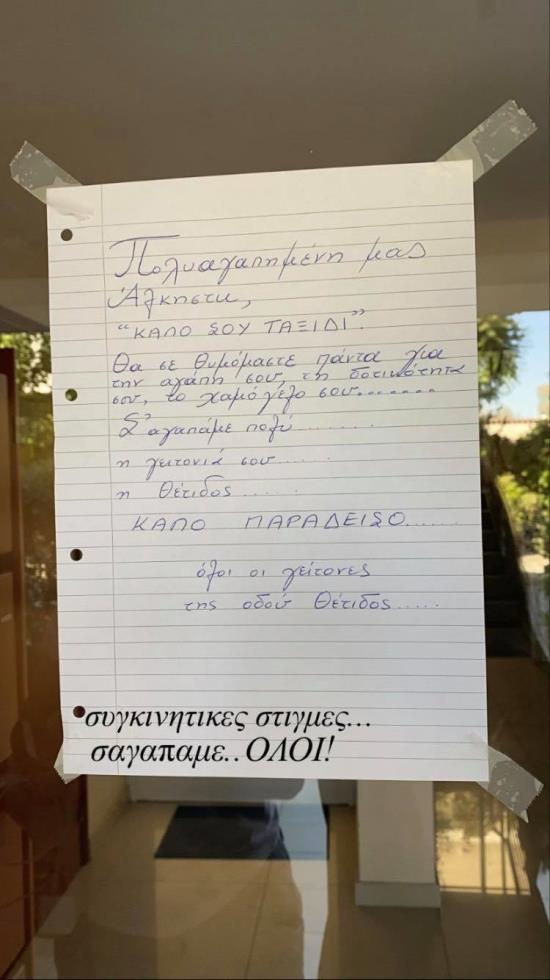 Πολυαγαπημένη μας
Άλκηστη,
"ΚΑΛΟ ΣΟΥ ΤΑΞΙΔΙ".
Θα σε θυμόμαστε πάντα για
την αγάπη σου, τη δοτικότητα
σου, το χαμόγελο σου.......
Σ'αγαπάμε πολύ.........
η γειτονιά σου......
η Θέτιδος.....
ΚΑΛΟ ΠΑΡΑΔΕΙΣΟ......
όλοι οι γείτονες
της οδού Θέτιδος.....
συγκινητικες στιγμες...
σαγαπαμε..ΟΛΟΙ!